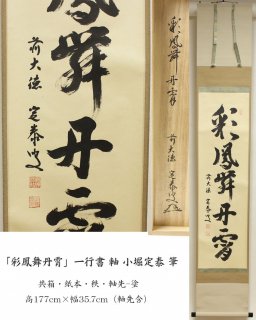 彩鳳舞丹霄
前大徳 定泰叟
彩鳳舞丹霄
前大徳 定泰叟
舞丹霄
前大徳 定泰叟
「彩鳳舞丹霄」一行書 軸 小堀定泰 筆
共箱・紙本・秩・軸先-塗
高177cm×幅35.7cm（軸先含）